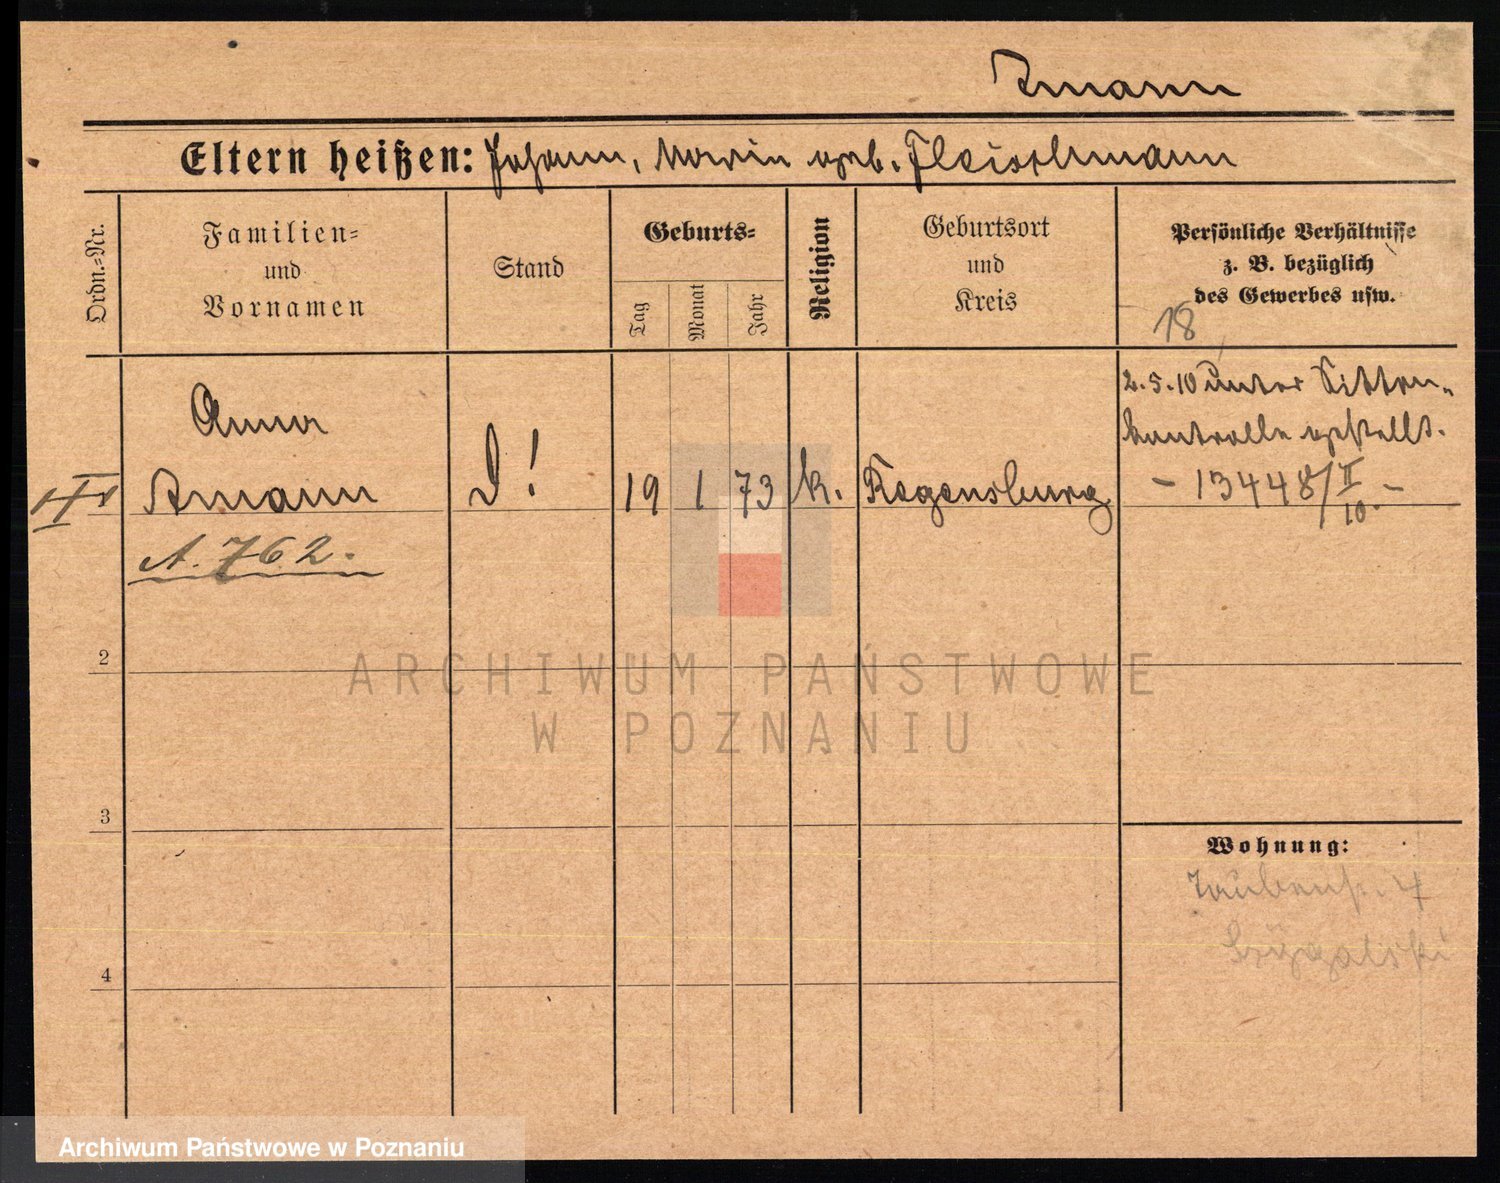 Amann
Eltern heißen: Johann, Maria geb. Fleischmann
Ordn.-Nr.
Familien-
und
Vornamen
Stand
Geburts-
Tag
Monat
Jahr
Religion
Geburtsort
und
Kreis
Persönliche Verhältnisse
z. B. bezüglich
des Gewerbes usw.
18
2.5.10 unter Sitten-
kontrolle gestellt.
- 13448/II 10. -
Anna
Amann
D!
19
1
73
k.
Regensburg
A. 762.
2
3
4
Wohnung:
Taubenstr. 4
ARCHIWUM PAŃSTWOWE
W POZNANIU
Archiwum Państwowe w Poznaniu